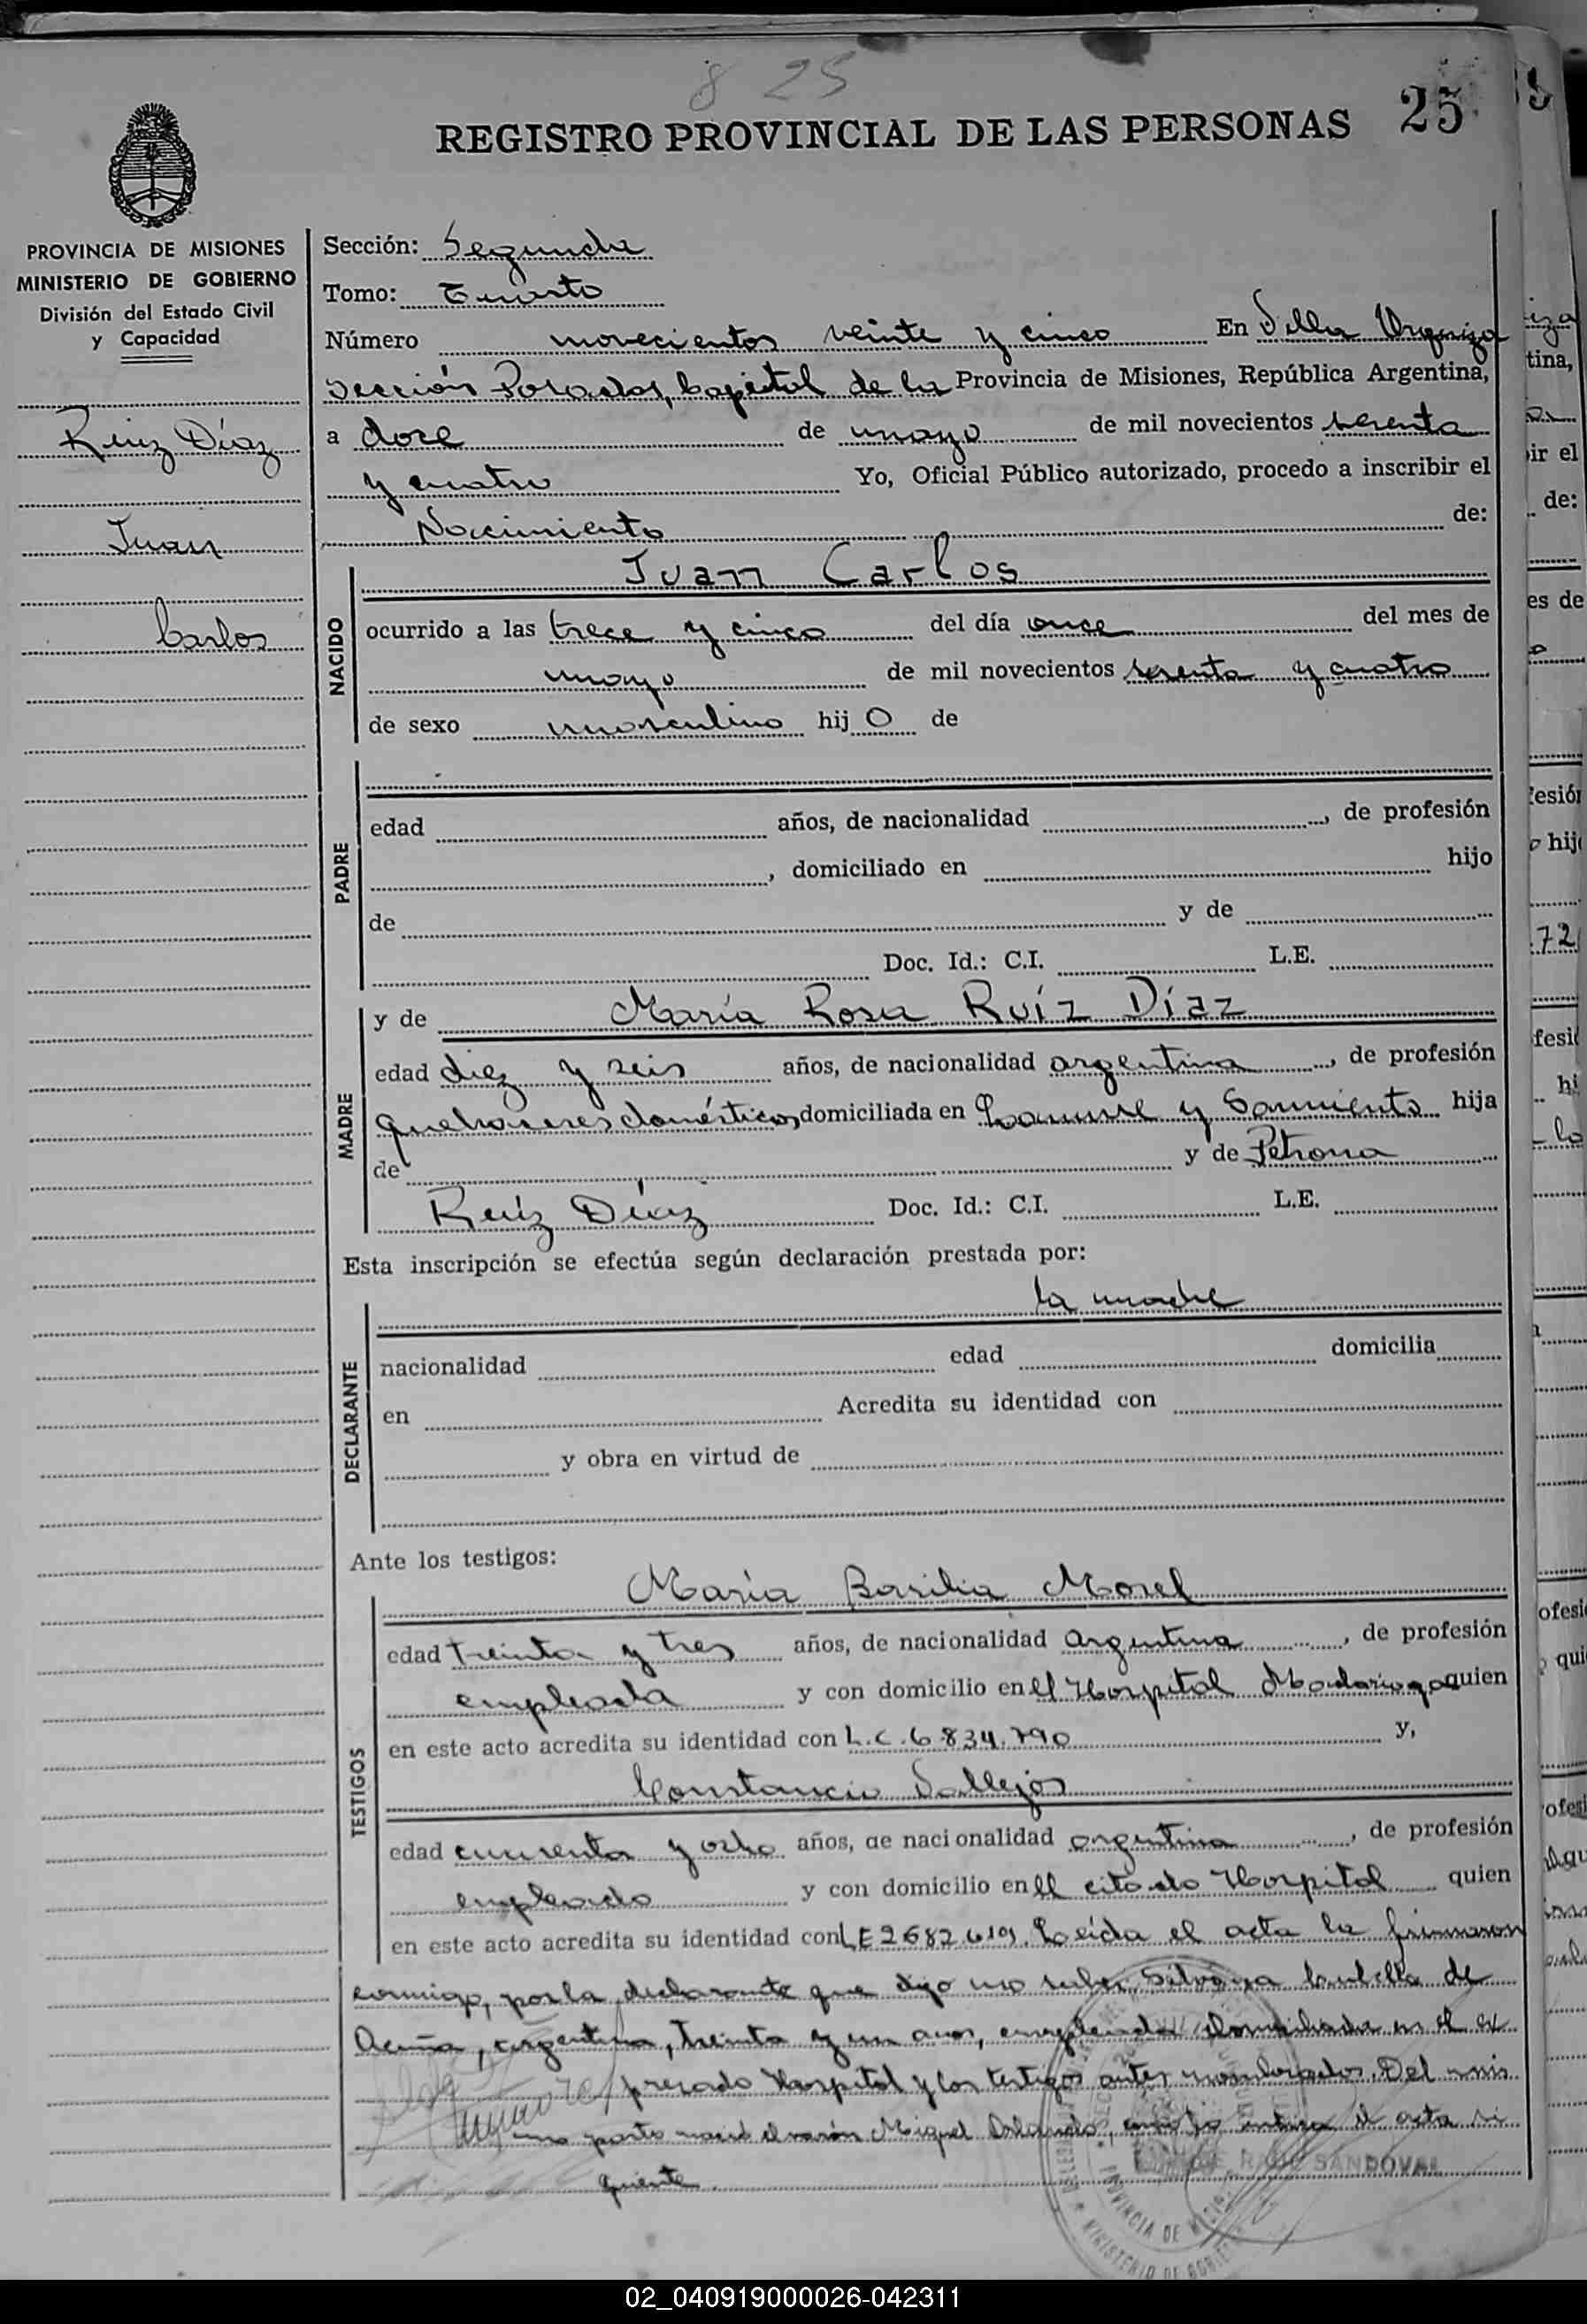 8 25
REGISTRO PROVINCIAL DE LAS PERSONAS 25
PROVINCIA DE MISIONES
MINISTERIO DE GOBIERNO
División del Estado Civil
y Capacidad
Ruiz Díaz
Juan
Carlos
Sección: Segunda
Tomo: Cuarto
Número novecientos veinte y cinco En Villa Urquiza
sección Posadas, Capital de la Provincia de Misiones, República Argentina,
a doce de mayo de mil novecientos sesenta
y cuatro Yo, Oficial Público autorizado, procedo a inscribir el
Nacimiento de:
NACIDO
Juan Carlos
ocurrido a las trece y cinco del día once del mes de
mayo de mil novecientos sesenta y cuatro
de sexo masculino hijo de
PADRE
edad años, de nacionalidad , de profesión
, domiciliado en hijo
de y de
Doc. Id.: C.I. L.E.
MADRE
y de María Rosa Ruíz Díaz
edad diez y seis años, de nacionalidad argentina , de profesión
quehaceres domésticos domiciliada en y Sarmiento hija
de y de Petrona
Ruíz Díaz Doc. Id.: C.I. L.E.
Esta inscripción se efectúa según declaración prestada por:
la madre
DECLARANTE
nacionalidad edad domicilia
en Acredita su identidad con
y obra en virtud de
Ante los testigos:
TESTIGOS
María Basilia Morel
edad treinta y tres años, de nacionalidad argentina , de profesión
empleada y con domicilio en el Hospital Madariaga quien
en este acto acredita su identidad con L.C. 6.834.790 y,
Constancio Vallejos
edad cuarenta y ocho años, de nacionalidad argentina , de profesión
empleado y con domicilio en el citado Hospital quien
en este acto acredita su identidad con LE 2682619. Leída el acta la firmaron
conmigo, por la declarante que dijo no saber, de
Acuña, argentina, treinta y un años, empleada domiciliada en el ex
presado Hospital y los testigos antes nombrados. Del mis
mo parto nació el varón Miguel Orlando, el acta si
guiente
RAUL SANDOVAL
PROVINCIA DE
MINISTERIO DE GOBIERNO
02_040919000026-042311